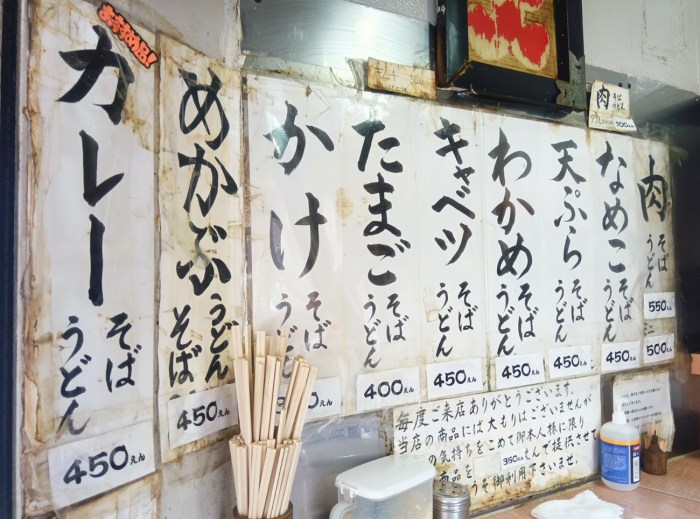 おすすめ品!
カレー
そば
うどん
450えん
めかぶ
うどん
そば
450えん
かけ
そば
うどん
たまご
そば
うどん
400えん
キャベツ
そば
うどん
450えん
わかめ
そば
うどん
450えん
天ぷら
そば
うどん
450えん
なめこ
そば
うどん
450えん
肉
そば
うどん
550えん
ミニ
500えん
肉
そば
うどん
700えん
毎度ご来店ありがとうございます。
当店の商品には大もりはございませんが
の気持ちをこめて御本人様に限り
350えんで提供させ
商品を
うぞ御利用下さいませ。